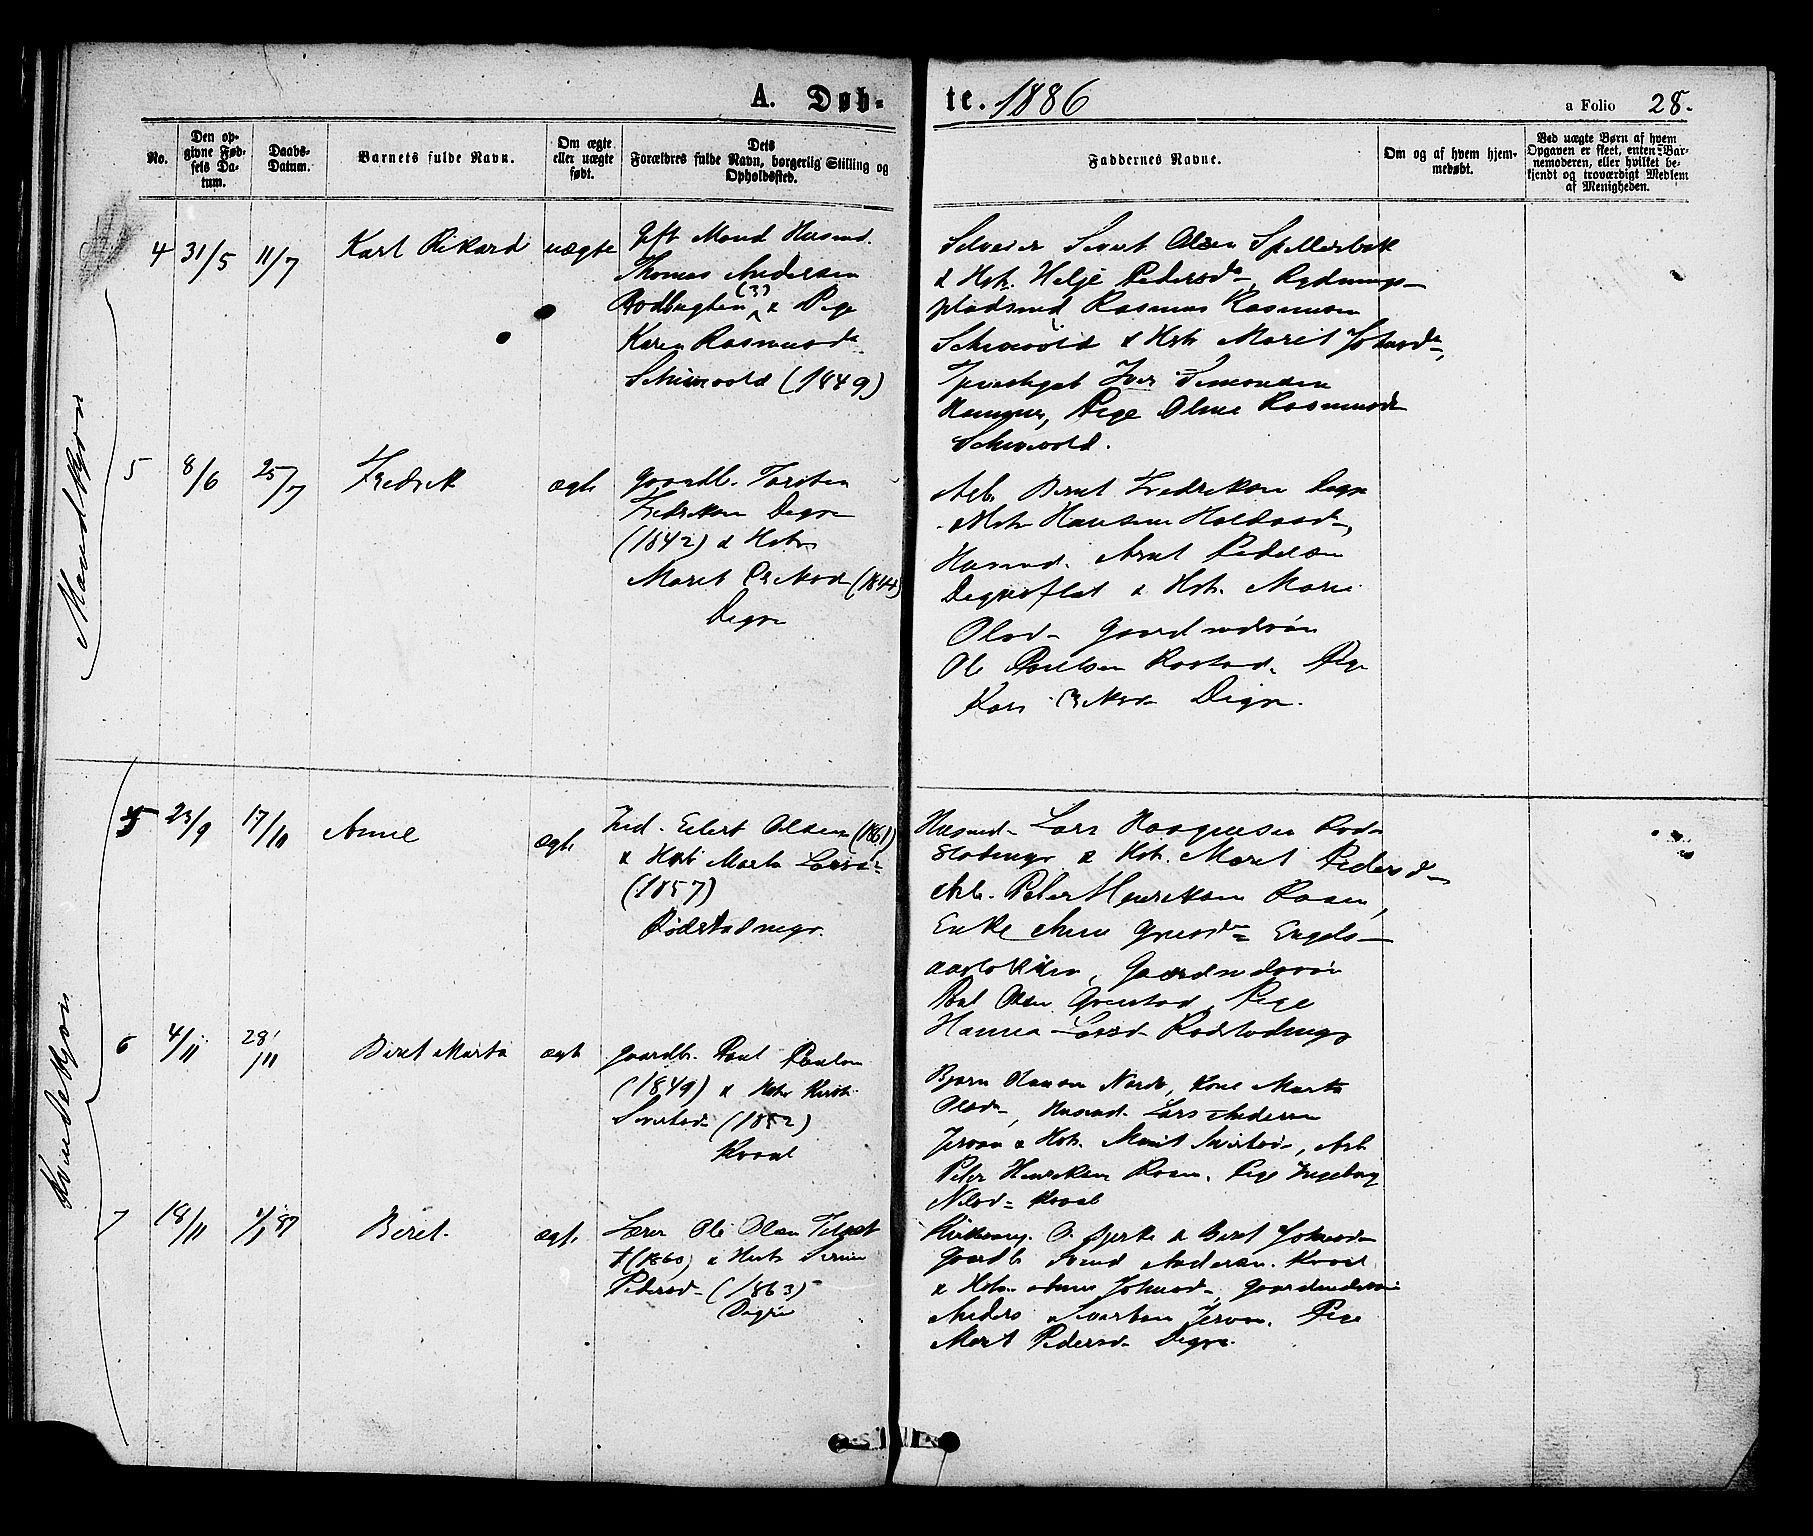 A. Døb-
te. 1886
a Folio 28.
No.
Den op-
givne Fød-
sels Da-
tum.
Daabs-
Datum.
Barnets fulde Navn.
Om ægte
eller uægte
født.
Dets
Forældres fulde Navn, borgerlig Stilling og
Opholdssted.
Faddernes Navne.
Om og af hvem hjem-
medøbt.
Ved uægte Børn af hvem
Opgaven er skeet, enten Bar-
nemoderen, eller hvilket be-
kjendt og troværdigt Medlem
af Menigheden.
Mandkjøn
4 31/5 11/7 Karl Rikard uægte
Gift Mand Husmd.
Thomas Andersen
(3)
Rodbugten & Pige
Karen Rasmusd.
(1849)
Selveier Sivert Olsen Spillerbak
& Hstr. Pedersd., Rydnings-
pladsmd Rasmus Rasmusen
& Hstr Marit Johnsd.,
Iver Simonsen
Pige Oline Rasmusd.
5 8/6 25/7 Fredrik ægte
Gaardb. Torsten
Fredriksen Digre
(1842) & Hstr.
Marit Eriksd. (1844)
Digre
Arb. Bernt Fredriksen Digre
& Hstr Hansine Haldosd.,
Husmd. Arnt Pedersen
Digresflat & Hstr. Marie
Olsd. Gaardmdssøn
Ole Paulsen Rostad. Pige
Kari Eriksd. Digre.
Kvindekjøn
5 23/9 17/10 Anne ægte
Ind. Eilert Olsen (1861)
& Hstr Marta Larsd.
(1857)
Rødstadnegr.
Husmd. Lars Haagensen Rod-
stadnegr & Hstr. Marit Pedersd.
Arb. Peter Henriksen Rosen,
Enke Engels-
Gaardmdssøn
Paul Olsen Grinstad, Pige
Hanna Larsd. Rodstadnegr
6 4/11 28/11 Beret Marta ægte
Gaardb. Paul Paulsen
(1849) & Hstr Kirsti
Sivertsd. (1852)
Kvaal
Bjørn Hansen Kone Marta
Olsd., Husmd. Lars Andersen
Jervan & Hstr. Marit Sivertsd., Arb.
Peter Henriksen Rosen. Pige Ingeborg
Nilsd. Kvaal
7 18/11 1/1 87 Beret. ægte
Lærer Ole Olsen
(1860) & Hstr
Pedersd. (1863)
Digre
Kirkesang. O. Bjerke & Beret Johnsd.
Gaardb Svend Andersen. Kvaal
& Hstr. Anne Johnsd., Gaardmdssøn
Anders Sivertsen Jervan. Pige
Marit Pedersd. Digre.